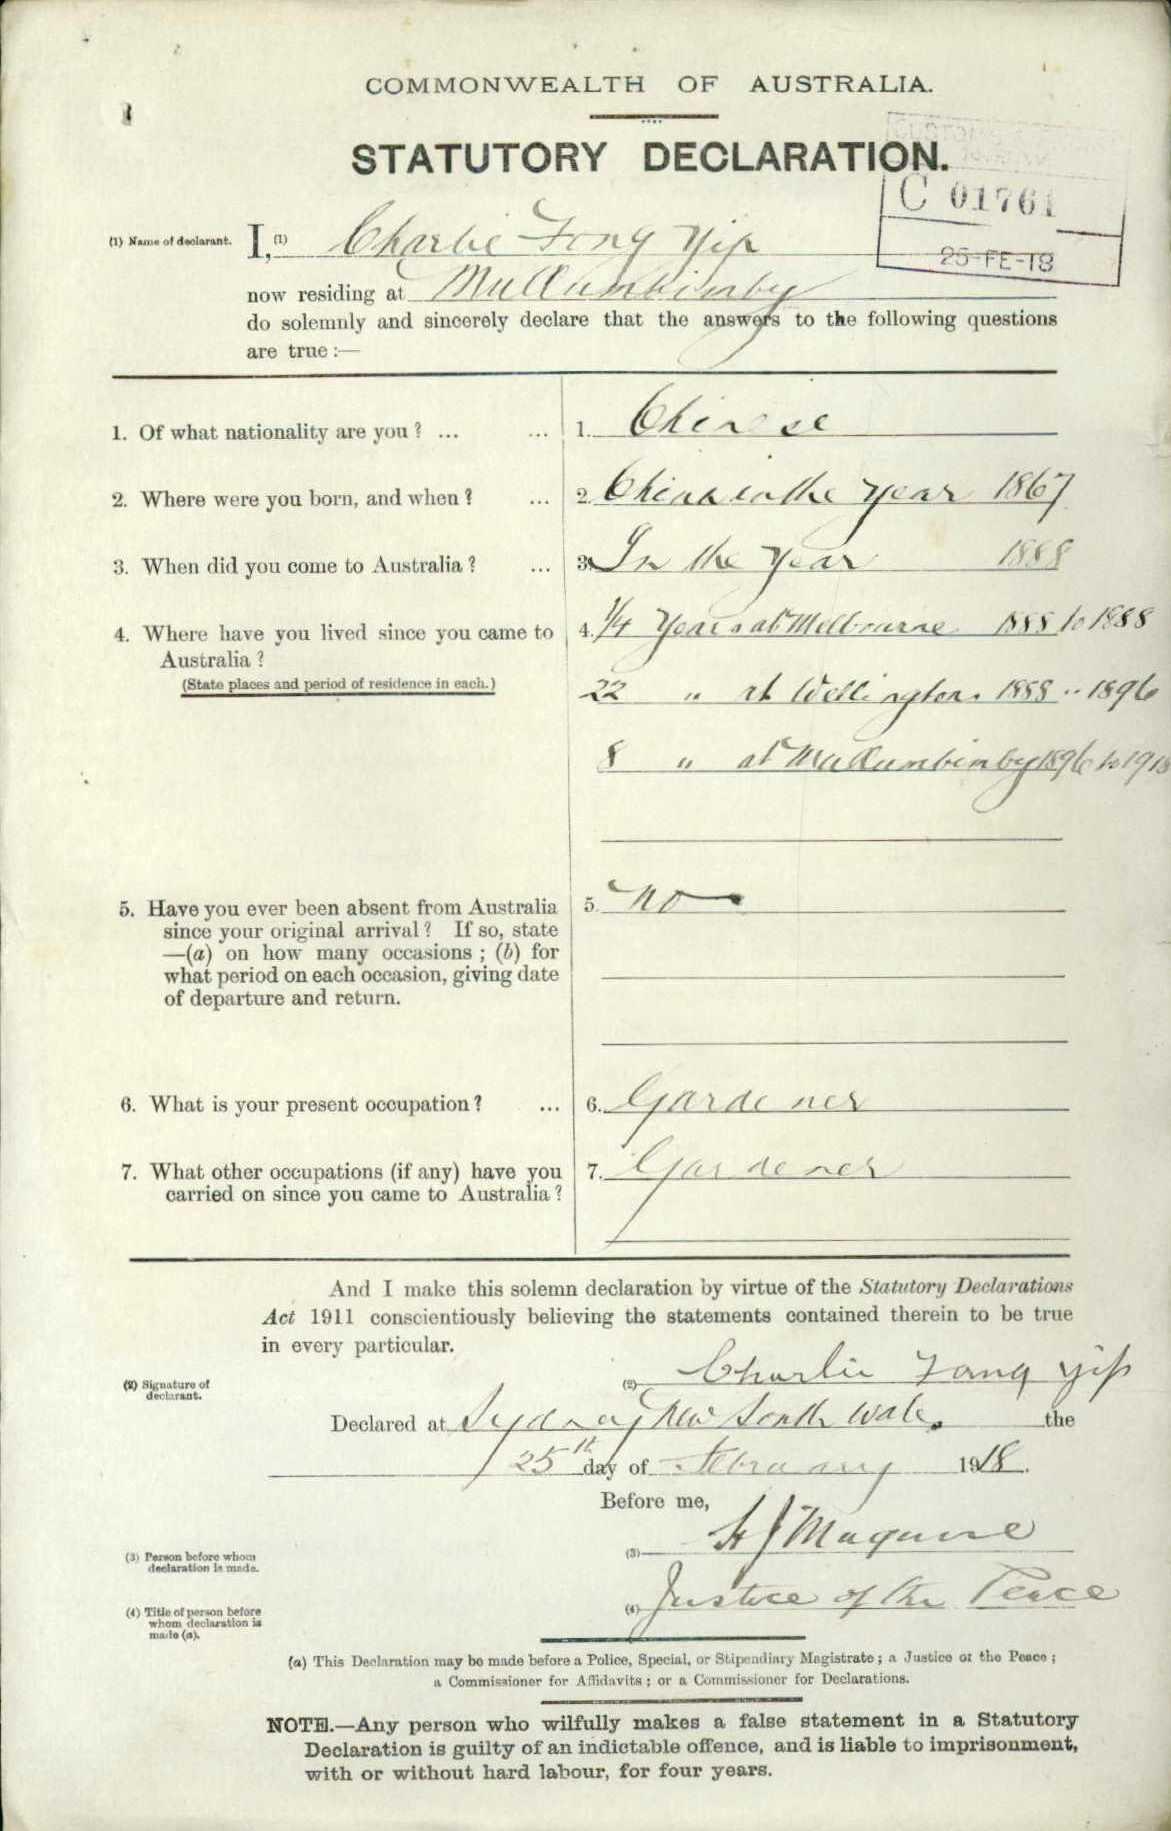 COMMONWEALTH OF AUSTRALIA.
STATUTORY DECLARATION.
C 01761
25-FE-18
(1) Name of declarant. I, (1) Charlie Fong Yip
now residing at Mullumbimby
do solemnly and sincerely declare that the answers to the following questions
are true :—
1. Of what nationality are you ? ... ... 1. Chinese
2. Where were you born, and when ? ... 2. China in the year 1867
3. When did you come to Australia ? ... 3. In the year 1888
4. Where have you lived since you came to 4. 1/4 Years at Melbourne 1888 to 1888
Australia ?
(State places and period of residence in each.) 22 " at Wellington. 1888 " 1896
8 " at Mullumbimby 1896 to 1918
5. Have you ever been absent from Australia 5. no
since your original arrival ? If so, state
—(a) on how many occasions ; (b) for
what period on each occasion, giving date
of departure and return.
6. What is your present occupation ? ... 6. Gardener
7. What other occupations (if any) have you 7. Gardener
carried on since you came to Australia ?
And I make this solemn declaration by virtue of the Statutory Declarations
Act 1911 conscientiously believing the statements contained therein to be true
in every particular.
(2) Signature of (2) Charlie Fong Yip
declarant.
Declared at Sydney New South Wales the
25th day of February 1918.
Before me,
(3) Person before whom (3) H J Maguire
declaration is made.
(4) Title of person before (4) Justice of the Peace
whom declaration is
made (a).
(a) This Declaration may be made before a Police, Special, or Stipendiary Magistrate ; a Justice of the Peace ;
a Commissioner for Affidavits ; or a Commissioner for Declarations.
NOTE.—Any person who wilfully makes a false statement in a Statutory
Declaration is guilty of an indictable offence, and is liable to imprisonment,
with or without hard labour, for four years.